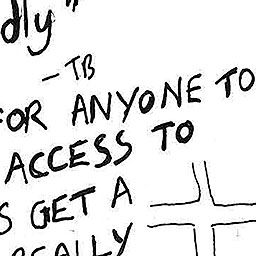 dly"
- TB
FOR ANYONE TO
ACCESS TO
S GET A
REALLY